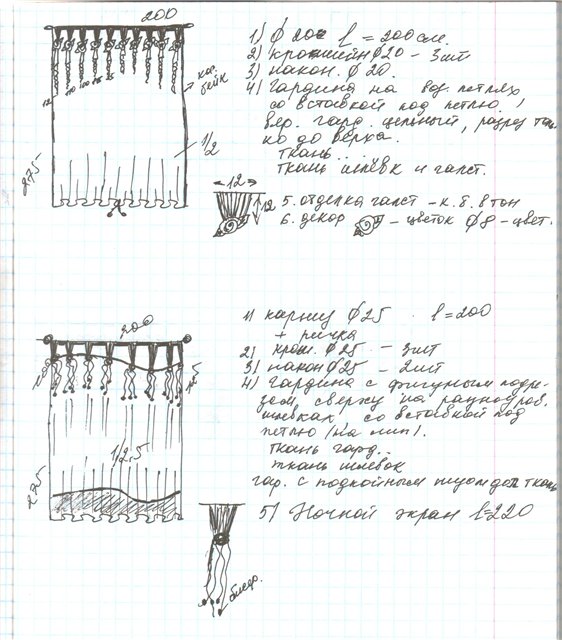 200
1) ф 20 l = 200 см.
2) кронштейн ф20 - 3шт
3) након. ф 20.
4) Гардина на воз. петлях
со вставкой под петлю,
вер. гард. цельный, разрез толь
ко до верха.
ткань...
ткань шлевк и галст.
кос.
бейк
1/2
275
12
← 12 →
12
5. отделка галст - к. б. в тон
6. декор - цветок ф8 - цвет.
200
1) карниз ф25 l = 200
+ ричка
2) крон. ф25 - 3шт
3) након ф25 - 2шт
4) Гардина с фигурным подре-
зом, сверху на разноуров.
шлевках со вставкой под
петлю (на лип).
ткань гард..
ткань шлевок
гар. с подкройным низом доп ткань
5) Ночной экран l=220
1/2,5
275
бисер.